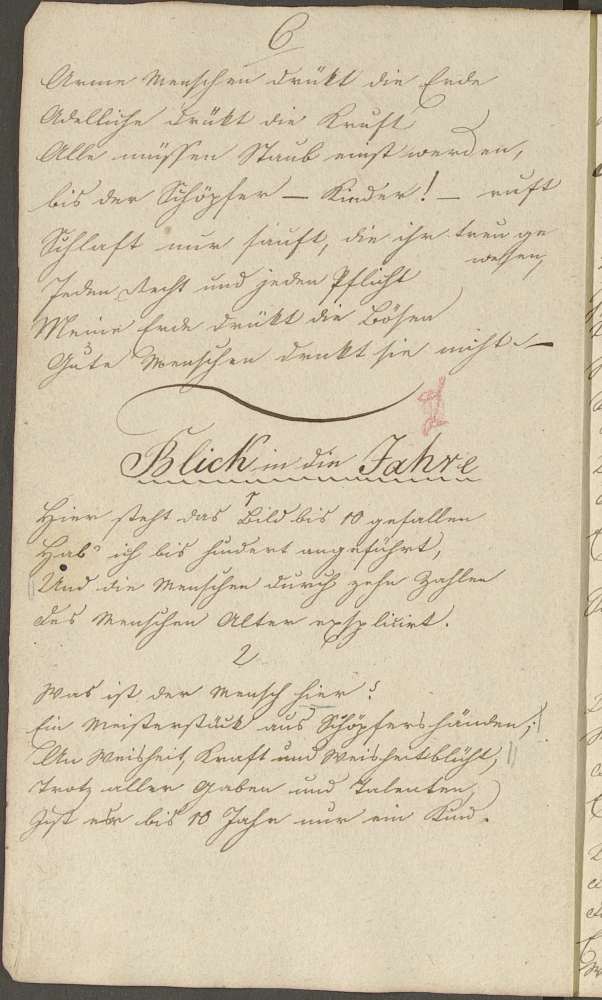 6
Arme Menschen drükt die Erde
Adelliche drükt die Kruft
Alle müssen Staub einst werden,
bis der Schöpfer — Kinder! — ruft
Schlaft nur sanft, die ihr treu ge
wesen,
Jeden Recht und jeden Pflicht
Meine Erde drükt die Bösen
Gute Menschen drukt sie nicht. —
Blick in die Jahre
1
Hier steht das Bild bis 10 gefallen
Hab' ich bis hundert angeführt,
Und die Menschen durch zehn Zahlen
des Menschen Alter explicirt.
2
Was ist der Mensch hier?
Ein Meisterstück aus Schöpfershänden,
An Weisheit, Kraft und Weisheit blüht,
Trotz aller Gaben und Talenten,
Ist er bis 10 Jahr nur ein Kind.